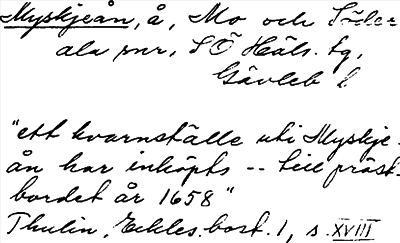 Myskjeån, å, Mo och Söder
ala snr, SÖ Häls. tg,
Gävleb l
"ett kvarnställe uti Myskje-
ån har inköpts -- till präst-
bordet år 1658"
Thulin, Eckles. bost. 1, s. XVIII